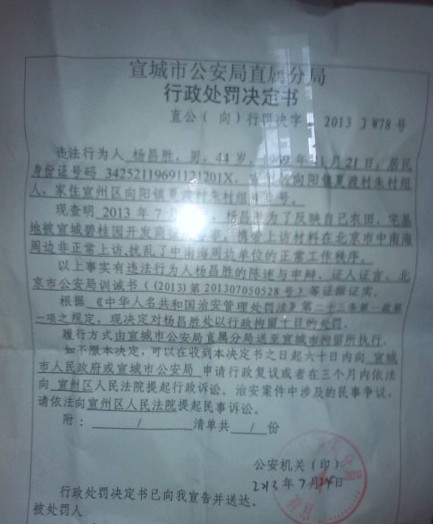 宣城市公安局直属分局
行政处罚决定书
直公（ 向）行罚决字 2013 178 号
违法行为人 杨昌胜，男，44 岁， 11 月 21 日，居民
身份证号码 34252119691121201X， 向阳镇夏渡村朱村组
人，家住宣州区向阳镇夏渡村朱村组 号。
现查明 2013 年 7 杨昌胜为了反映自己农田、宅基
地被宣城碧桂园开发商 携带上访材料在北京市中南海
周边非正常上访，扰乱了中南海周边单位的正常工作秩序。
以上事实有违法行为人杨昌胜的陈述与申辩、证人证言、北
京市公安局训诫书（(2013)第 201307050528 号）等证据证实。
根据 《中华人名共和国治安管理处罚法》第二十三条第一款第
一项之规定，现决定对杨昌胜处以行政拘留十日的处罚。
履行方式由宣城市公安局直属分局送至宣城市拘留所执行。
如不服本决定，可以在收到本决定书之日起六十日内向 宣城
市人民政府或宣城市公安局 申请行政复议或者在三个月内依法
向 宣州区人民法院提起行政诉讼。治安案件中涉及的民事争议，
请依法向宣州区人民法院提起民事诉讼。
附： / 清单共 / 份
公安机关（印）
2013 年 7 月 日
行政处罚决定书已向我宣告并送达。
被处罚人